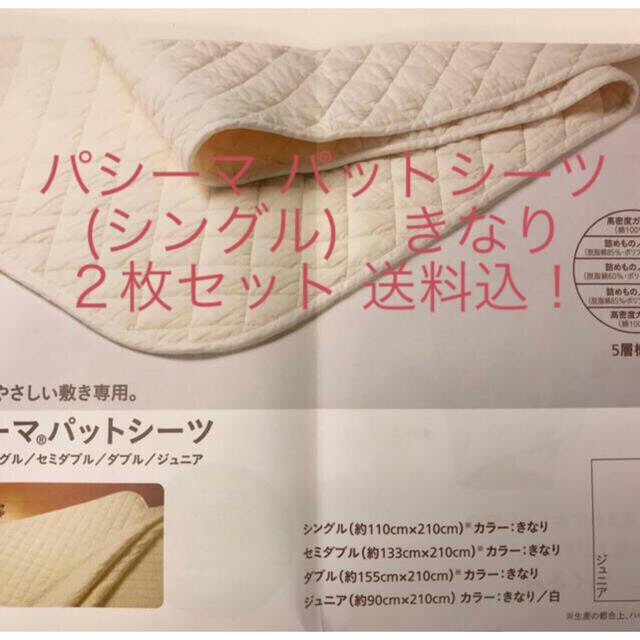 パシーマ パットシーツ
(シングル)　きなり
２枚セット 送料込！
高密度ガ
(綿100%
詰めもの
(脱脂綿85%・ポリ
詰めもの
(脱脂綿60%・ポリ
詰めもの
(脱脂綿85%・ポリ
高密度ガ
(綿100
5層構
やさしい敷き専用。
ーマ®パットシーツ
グル／セミダブル／ダブル／ジュニア
シングル(約110cm×210cm)※カラー：きなり
セミダブル(約133cm×210cm)※カラー：きなり
ダブル(約155cm×210cm)※カラー：きなり
ジュニア(約90cm×210cm) カラー：きなり／白
ジュニア
※生産の都合上、ハ